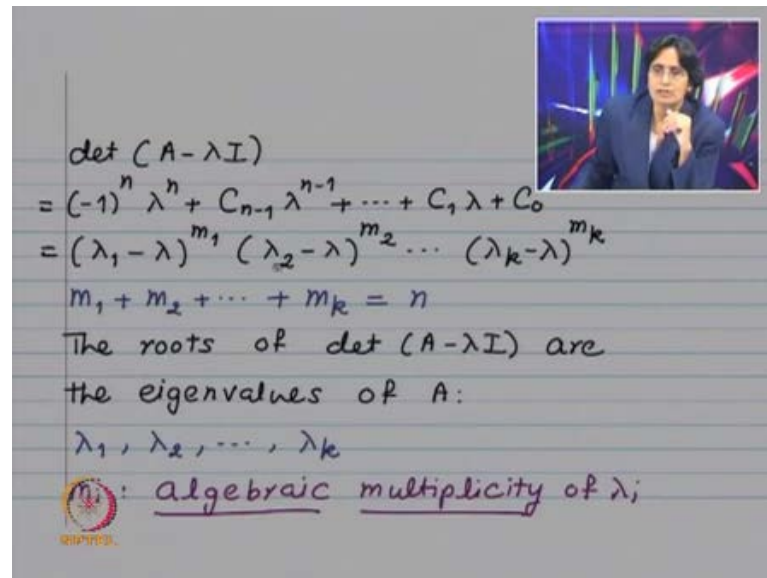 det (A - λI)
= (-1)ⁿ λⁿ + Cₙ₋₁ λⁿ⁻¹ + ... + C₁ λ + C₀
= (λ₁ - λ)^m₁ (λ₂ - λ)^m₂ ... (λₖ - λ)^mₖ
m₁ + m₂ + ... + mₖ = n
The roots of det (A - λI) are
the eigenvalues of A:
λ₁, λ₂, ..., λₖ
mᵢ: algebraic multiplicity of λᵢ